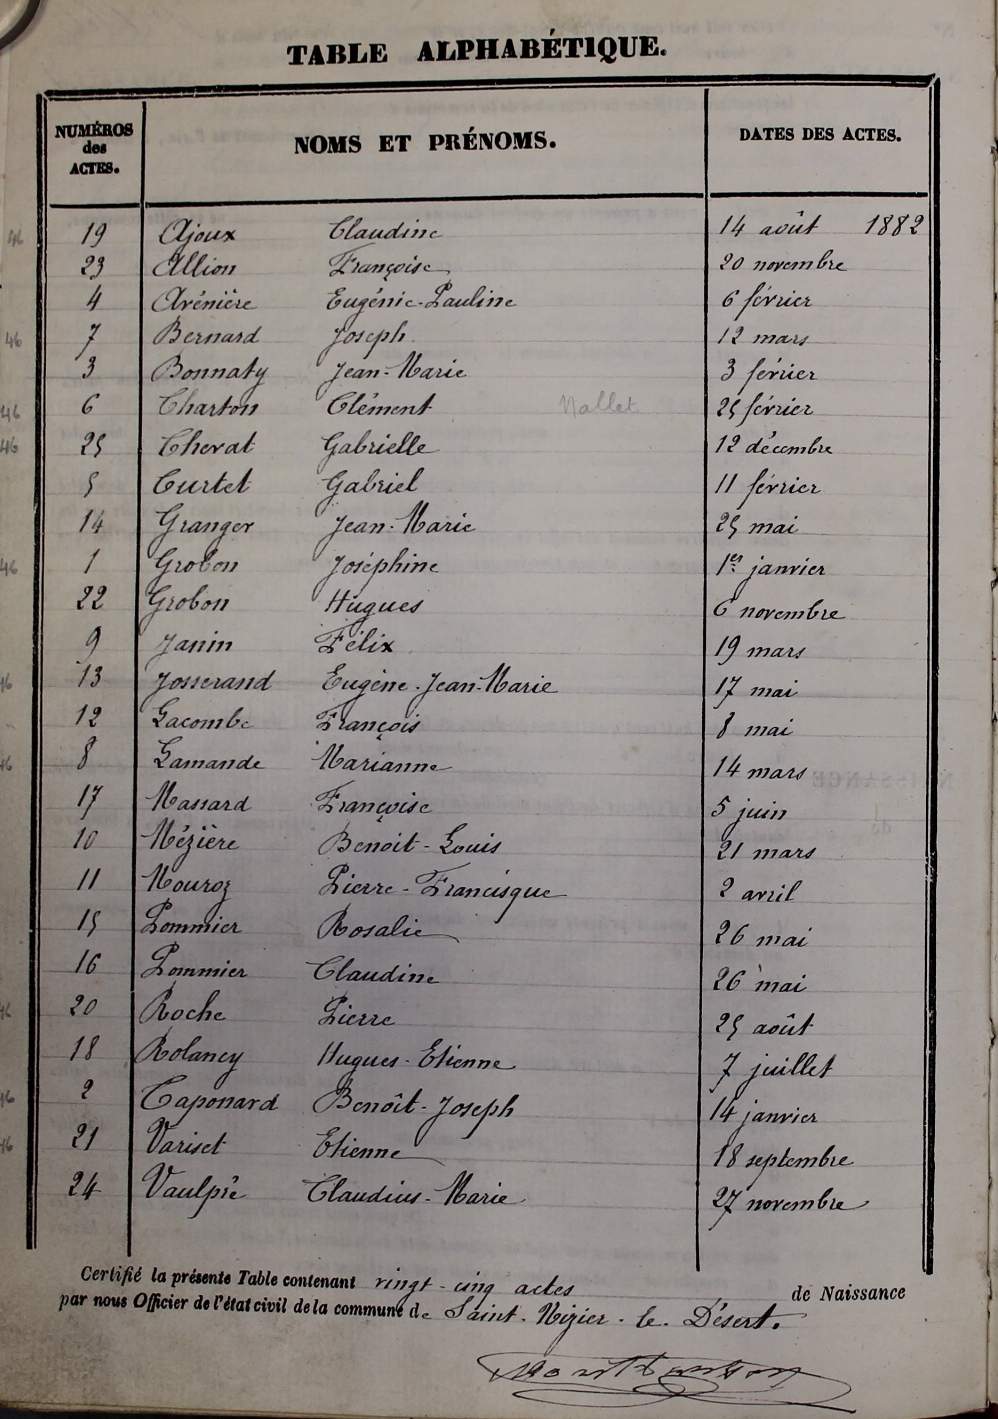 TABLE ALPHABÉTIQUE.
NUMÉROS des ACTES. NOMS ET PRÉNOMS. DATES DES ACTES.
46 19 Ajoux Claudine 14 août 1882
23 Allion Françoise 20 novembre
4 Avénière Eugénie-Pauline 6 février
46 7 Bernard Joseph 12 mars
3 Bonnaty Jean-Marie 3 février
46 6 Charton Clément Nallet 25 février
46 25 Chevat Gabrielle 12 décembre
5 Curtet Gabriel 11 février
14 Granger Jean-Marie 25 mai
46 1 Grobon Joséphine 1er janvier
22 Grobon Hugues 6 novembre
9 Janin Félix 19 mars
46 13 Josserand Eugène-Jean-Marie 17 mai
12 Lacombe François 8 mai
46 8 Lamande Marianne 14 mars
17 Massard Françoise 5 juin
10 Mézière Benoit-Louis 21 mars
11 Mouroz Pierre-Francisque 2 avril
15 Pommier Rosalie 26 mai
16 Pommier Claudine 26 mai
46 20 Roche Pierre 25 août
18 Rolancy Hugues-Etienne 7 juillet
46 2 Taponard Benoît-Joseph 14 janvier
46 21 Variset Etienne 18 septembre
24 Vaulpré Claudius-Marie 27 novembre
Certifié la présente Table contenant vingt-cinq actes de Naissance
par nous Officier de l'état civil de la commune de Saint-Nizier-le-Désert.